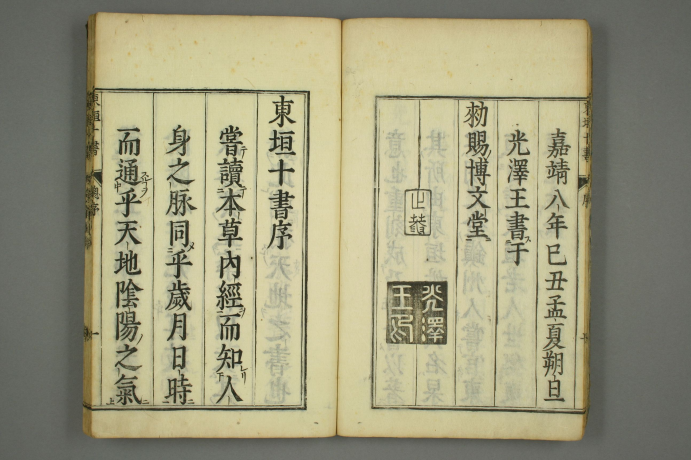 嘉靖八年巳丑孟夏朔旦
光澤王書于
勑賜博文堂
光澤
王
東垣十書序
嘗讀本草內經而知人
身之脉同乎歲月日時
而通乎天地陰陽之氣
東垣十書